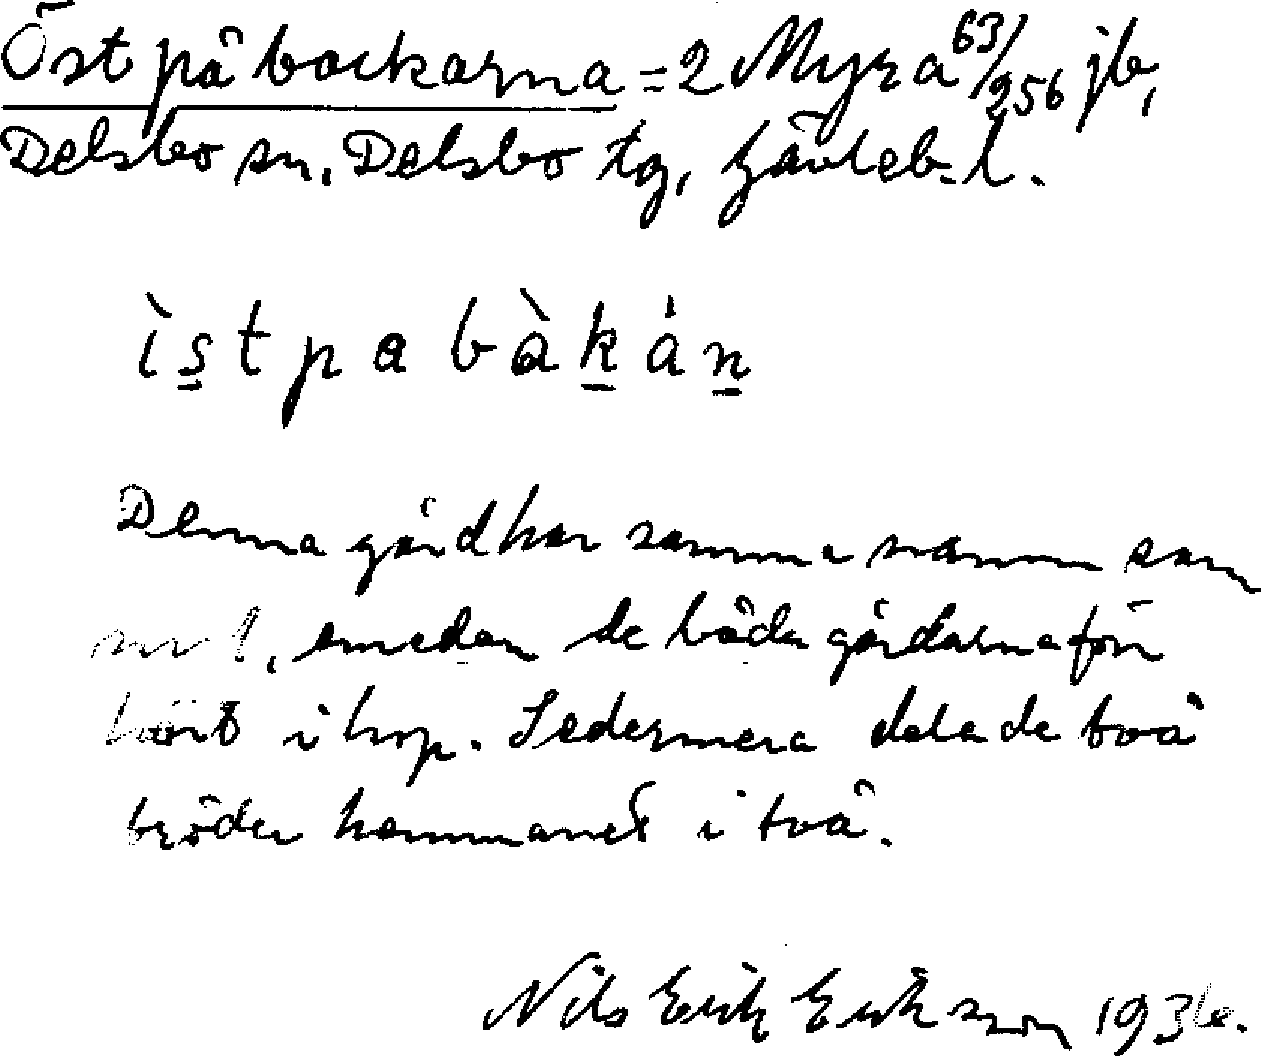 Öst på bockarna = 2 Myra 63/256 jb,
Delsbo sn, Delsbo tg, Gävleb. l.
ìs̱tpabàḵáṉ
Denna gård har samma namn som
nr 1, emedan de båda gårdarna förr
hört i hop. Sedermera delade två
bröder hemmanet i två.
Nils Erik Erikson 1936.